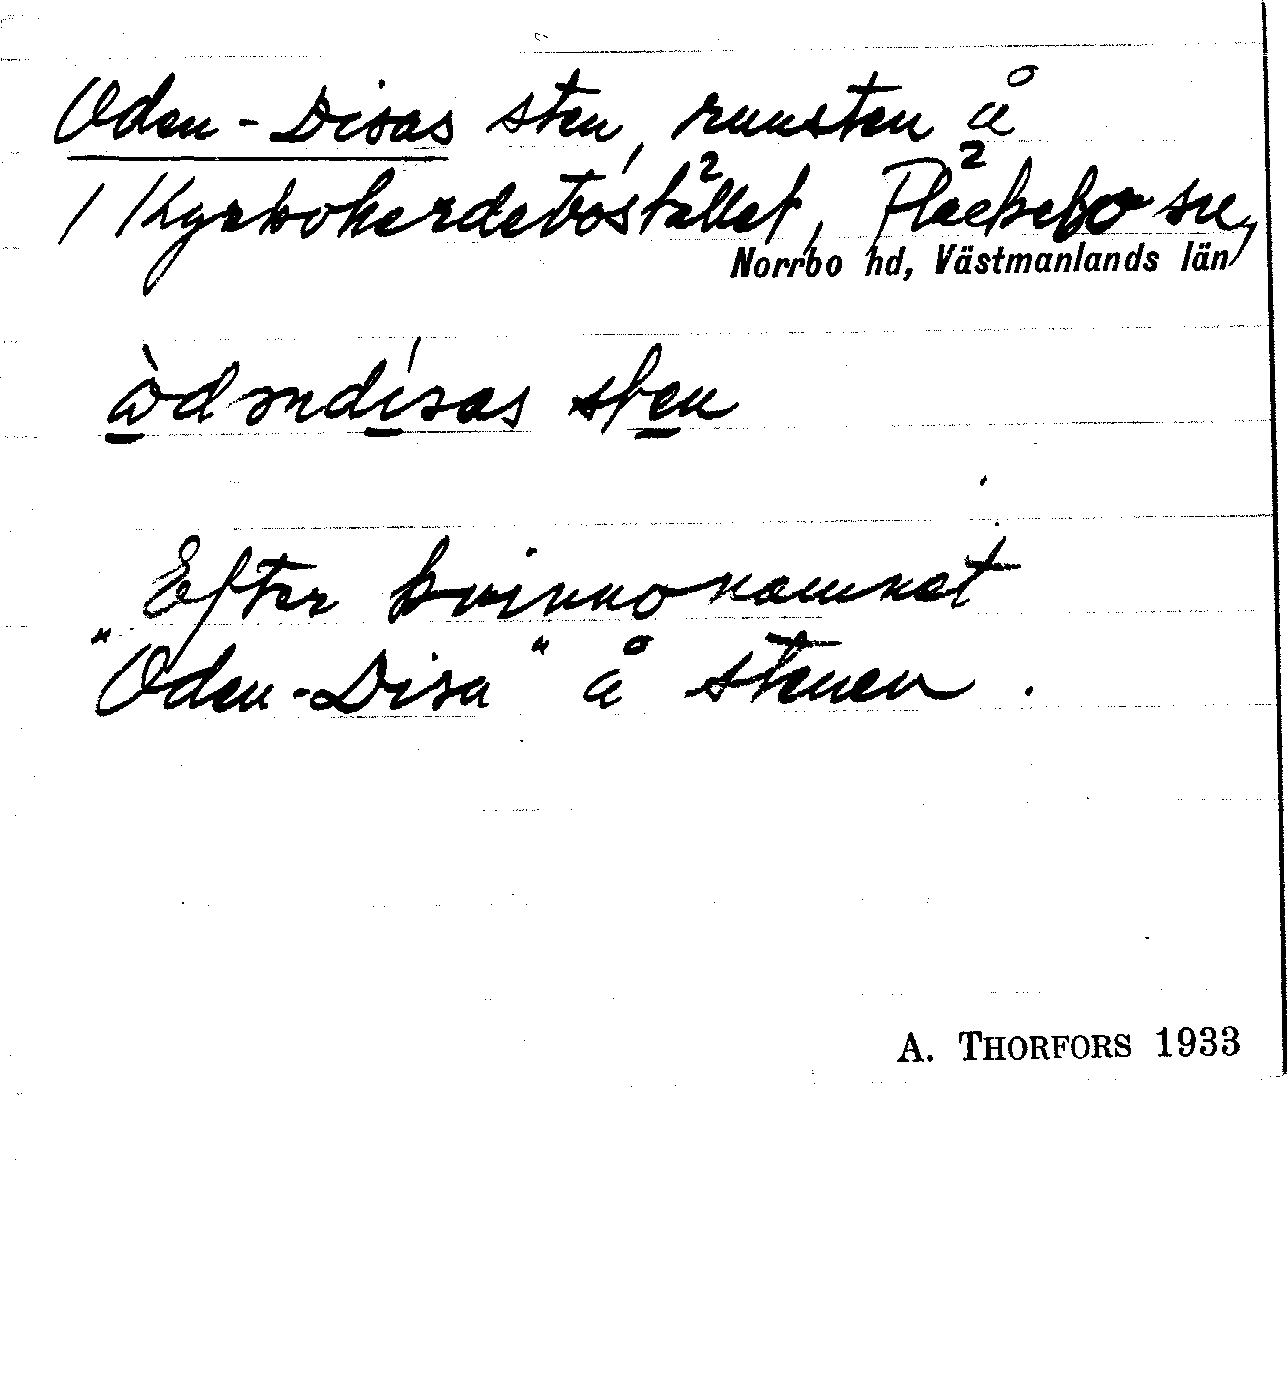 Oden-Disas sten, runsten å
/ Kyrkoherdebostället, Fläckebo sn,
Norrbo hd, Västmanlands län
ὼdəndísas sten
Efter kvinnonamnet
"Oden-Disa" å stenen.
A. THORFORS 1933